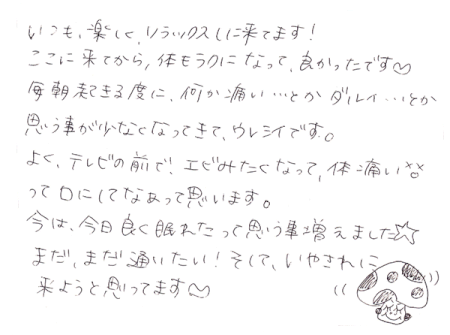 いつも、楽しく、リラックスしに来てます!
ここに来てから、体もラクになって、良かったです♡
毎朝起きる度に、何か痛い…とか ダルイ…とか
思う事が少なくなってきて、ウレシイです。
よく、テレビの前で、エビみたくなって、体痛い
って口にしてたなあって思います。
今は、今日良く眠れたって思う事増えました☆
まだ、まだ通いたい!そして、いやされに
来ようと思ってます♡